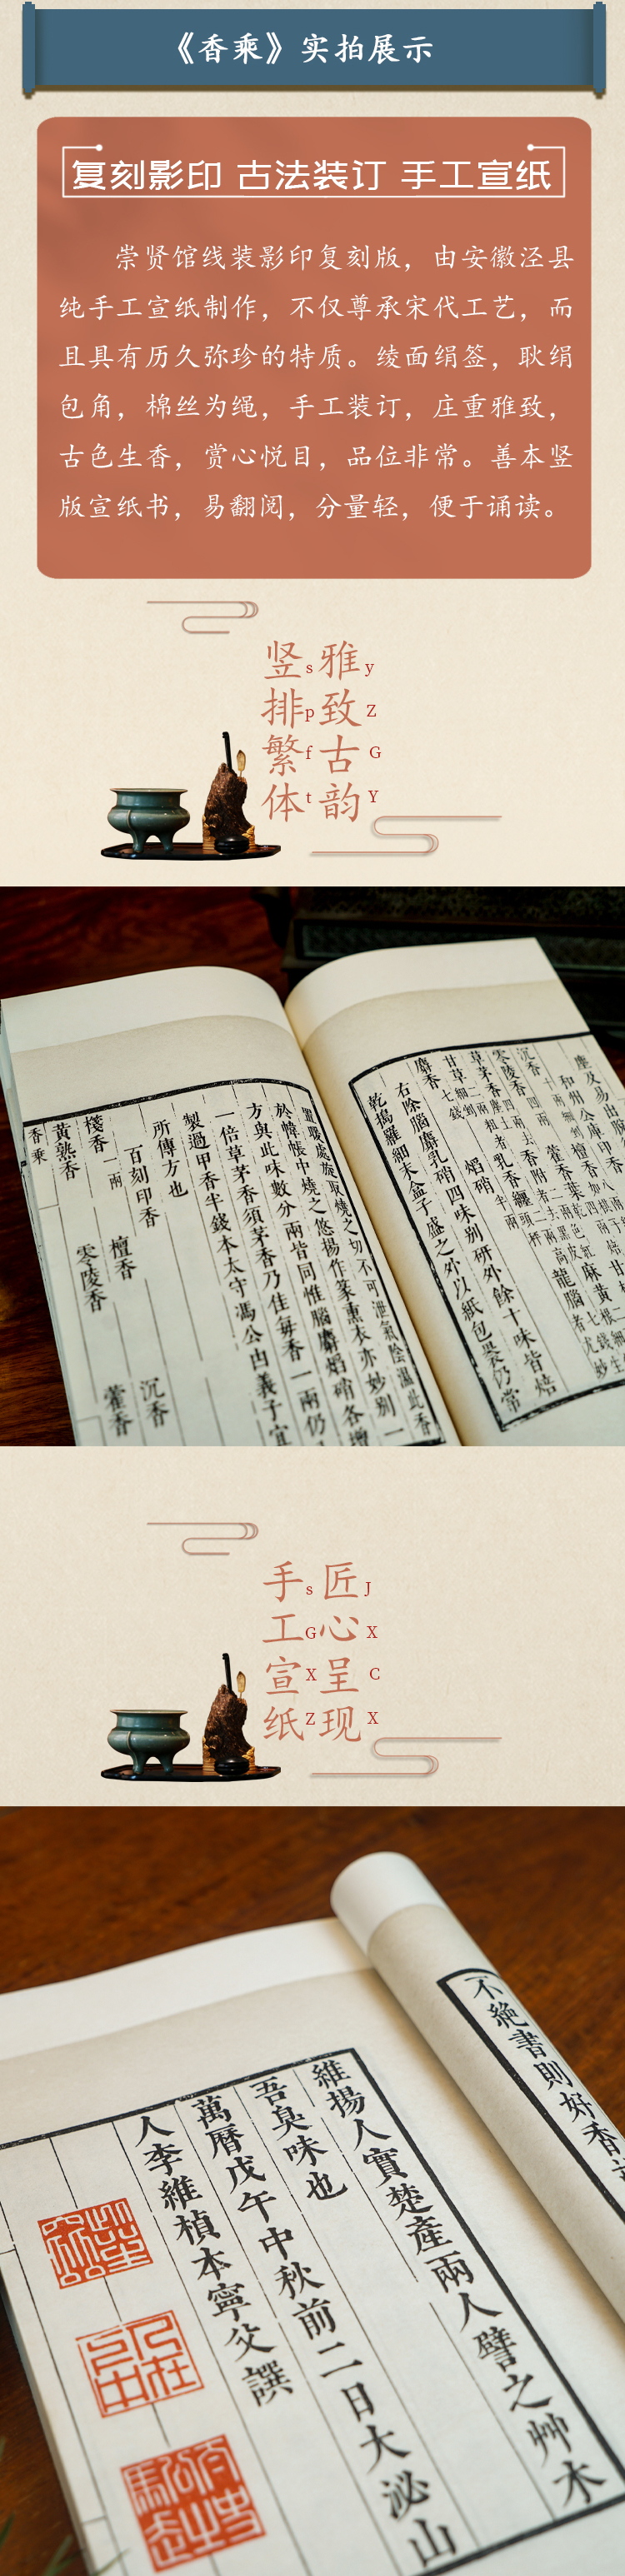 《香乘》实拍展示
复刻影印 古法装订 手工宣纸
崇贤馆线装影印复刻版，由安徽泾县
纯手工宣纸制作，不仅尊承宋代工艺，而
且具有历久弥珍的特质。绫面绢签，耿绢
包角，棉丝为绳，手工装订，庄重雅致，
古色生香，赏心悦目，品位非常。善本竖
版宣纸书，易翻阅，分量轻，便于诵读。
雅致古韵
yZGY
竖排繁体
spft
沉香
零陵香
草茅香
甘草
麝香
焰硝
右除腦麝乳硝四味别研外餘十味皆焙
乾搗羅細末盒子盛之外以紙包裹仍常
取燒之切不可泄氣陰濕此香
於幃帳中燒之悠揚作篆熏衣亦妙别一
方與此味數分兩皆同惟腦麝焰硝各增
一倍草茅香須茅香乃佳每香一兩仍
製過甲香半錢本太守馮公由義子宜
所傳方也
百刻印香
棧香一兩 檀香 沉香
黄熟香 零陵香 藿香
香乘
匠心呈现
JXCX
手工宣纸
sGXZ
不絶書則好香
維揚人實楚産兩人譬之艸木
吾臭味也
萬曆戊午中秋前二日大泌山
人李維楨本寧父譔